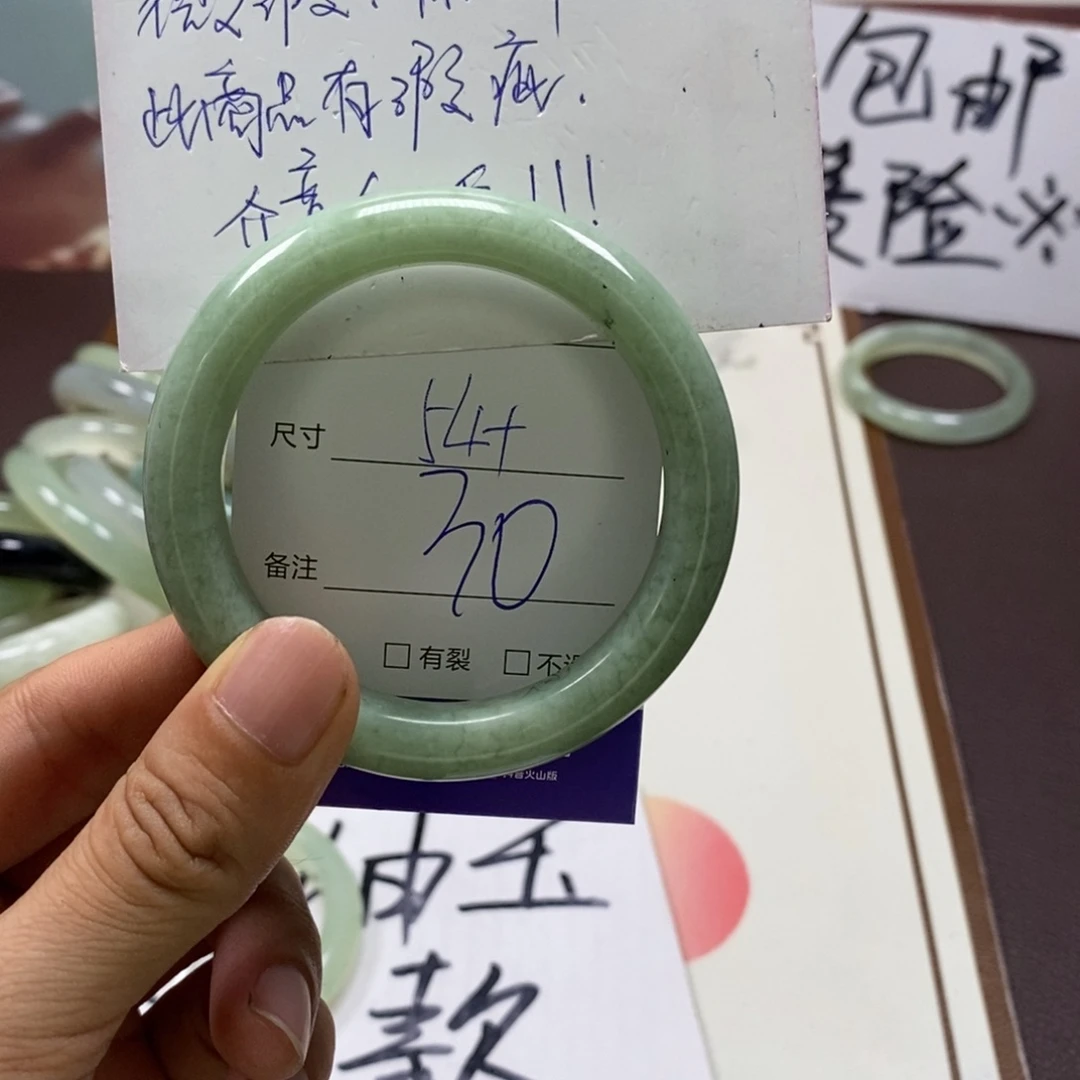 此商品有瑕疵.
介意
!!!
包邮
险※
尺寸 54+
备注 30
□ 有裂 □ 不
抖音火山版
油玉
款